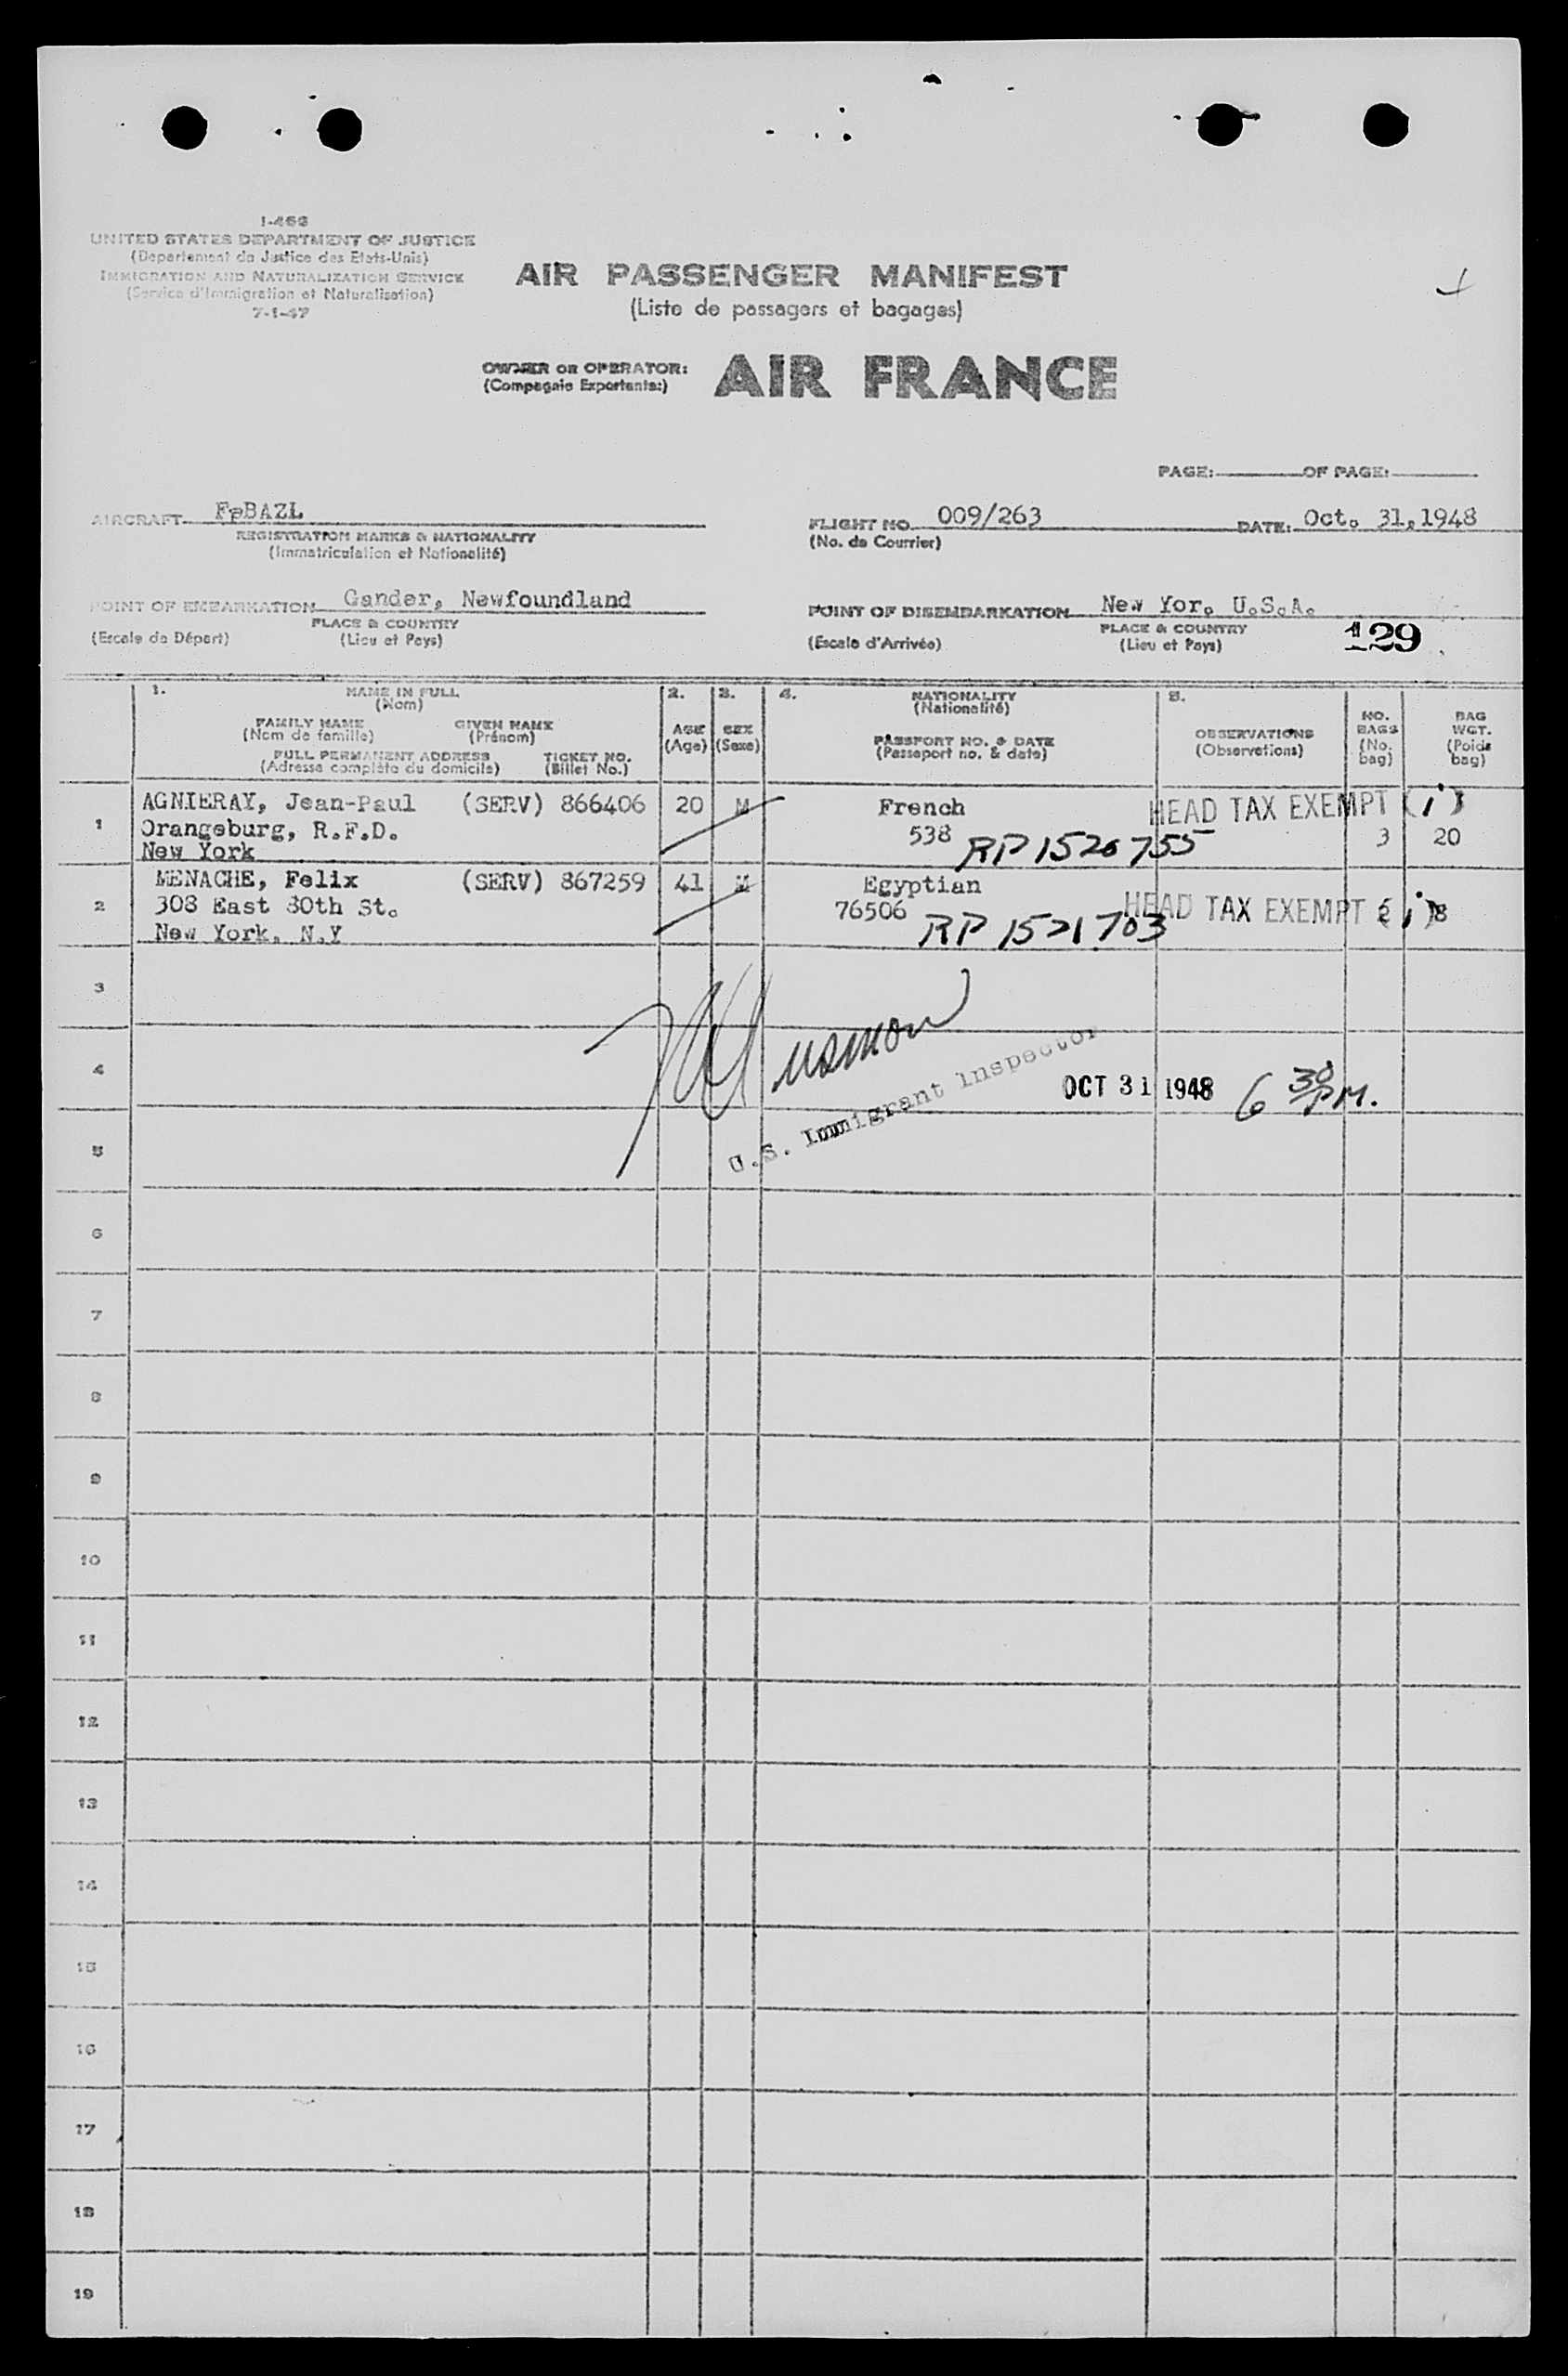 I-466
UNITED STATES DEPARTMENT OF JUSTICE
(Departement de Justice des Etats-Unis)
IMMIGRATION AND NATURALIZATION SERVICE
(Service d'Immigration et Naturalisation)
7-1-47
AIR PASSENGER MANIFEST
(Liste de passagers et bagages)
OWNER OR OPERATOR: AIR FRANCE
(Compagnie Exportante:)
PAGE: OF PAGE:
AIRCRAFT FpBAZL
REGISTRATION MARKS & NATIONALITY
(Immatriculation et Nationalité)
FLIGHT NO. 009/263 DATE: Oct. 31,1948
(No. de Courrier)
POINT OF EMBARKATION Gander, Newfoundland
PLACE & COUNTRY
(Escale de Départ) (Lieu et Pays)
POINT OF DISEMBARKATION New Yor. U.S.A.
PLACE & COUNTRY
(Escale d'Arrivée) (Lieu et Pays)
129
1. NAME IN FULL
(Nom)
FAMILY NAME GIVEN NAME
(Nom de famille) (Prénom)
FULL PERMANENT ADDRESS TICKET NO.
(Adresse complète du domicile) (Billet No.)
2.
AGE
(Age)
3.
SEX
(Sexe)
4. NATIONALITY
(Nationalité)
PASSPORT NO. & DATE
(Passeport no. & date)
5.
OBSERVATIONS
(Observations)
NO. BAGS
(No. bag)
BAG WGT.
(Poids bag)
1 AGNIERAY, Jean-Paul (SERV) 866406 20 M French HEAD TAX EXEMPT (i)
Orangeburg, R.F.D. 538 RP 1526755 3 20
New York
2 MENACHE, Felix (SERV) 867259 41 M Egyptian
308 East 80th St. 76506 RP 1521703 HEAD TAX EXEMPT (i) 8
New York, N.Y
3
4
U.S. Immigrant Inspector
OCT 31 1948 6 30 PM.
5
6
7
8
9
10
11
12
13
14
15
16
17
18
19